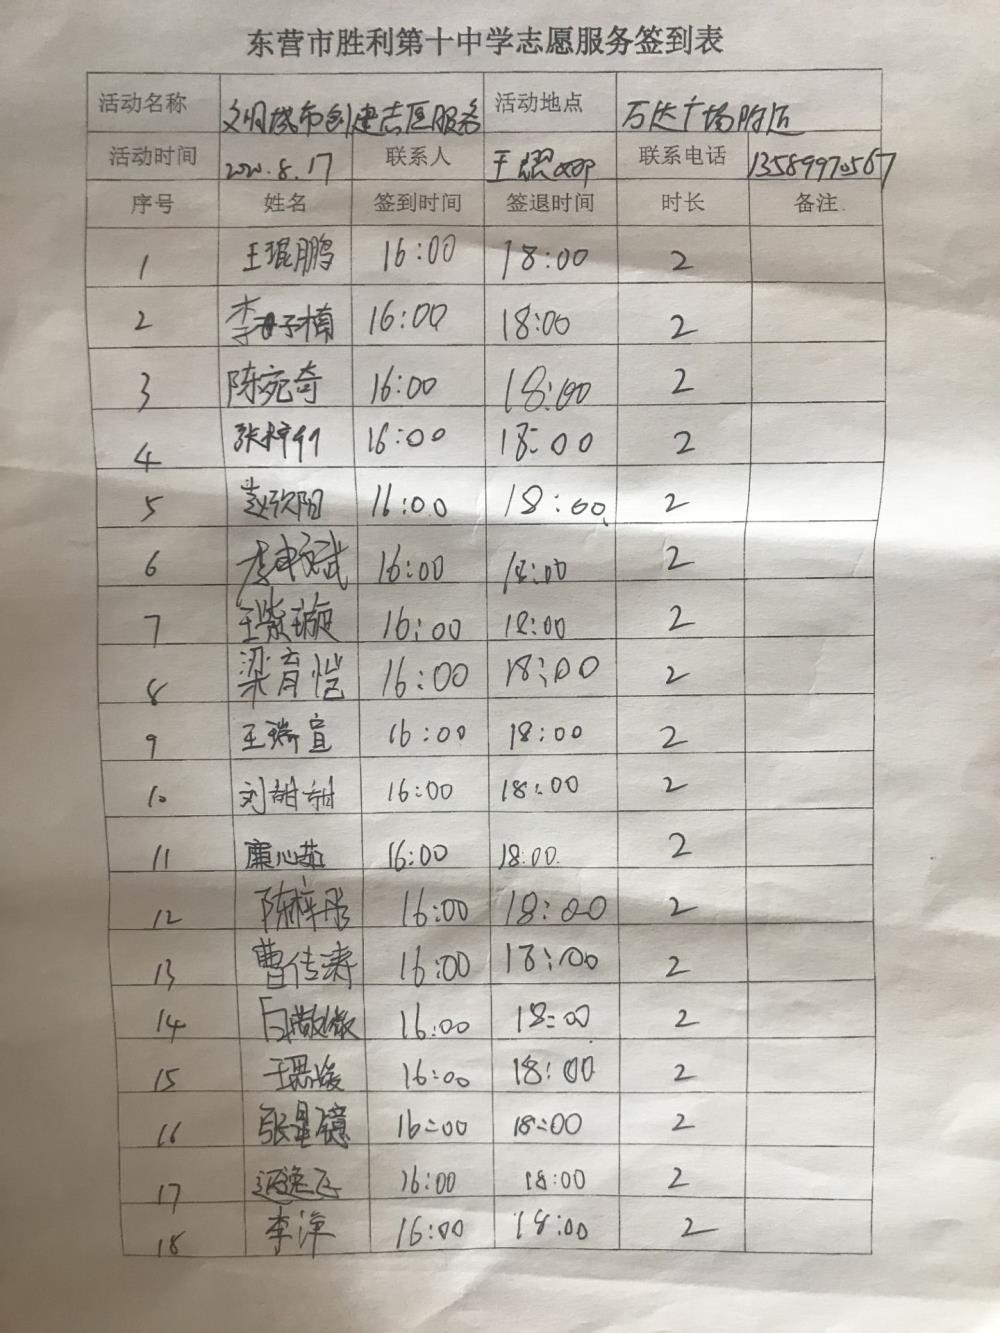 东营市胜利第十中学志愿服务签到表
活动名称 文明城市创建志愿服务 活动地点 万达广场附近
活动时间 2020.8.17 联系人 王 联系电话 13589970567
序号 姓名 签到时间 签退时间 时长 备注
1 王琨鹏 16:00 18:00 2
2 李子楠 16:00 18:00 2
3 陈宛奇 16:00 18:00 2
4 张梓 16:00 18:00 2
5 赵欣阳 16:00 18:00 2
6 李斌 16:00 18:00 2
7 王紫璇 16:00 18:00 2
8 梁育恺 16:00 18:00 2
9 王瑞宣 16:00 18:00 2
10 刘甜甜 16:00 18:00 2
11 廉心茹 16:00 18:00 2
12 陈梓彤 16:00 18:00 2
13 曹传涛 16:00 18:00 2
14 白薇 16:00 18:00 2
15 王思媛 16:00 18:00 2
16 张 16:00 18:00 2
17 逸飞 16:00 18:00 2
18 李洋 16:00 18:00 2